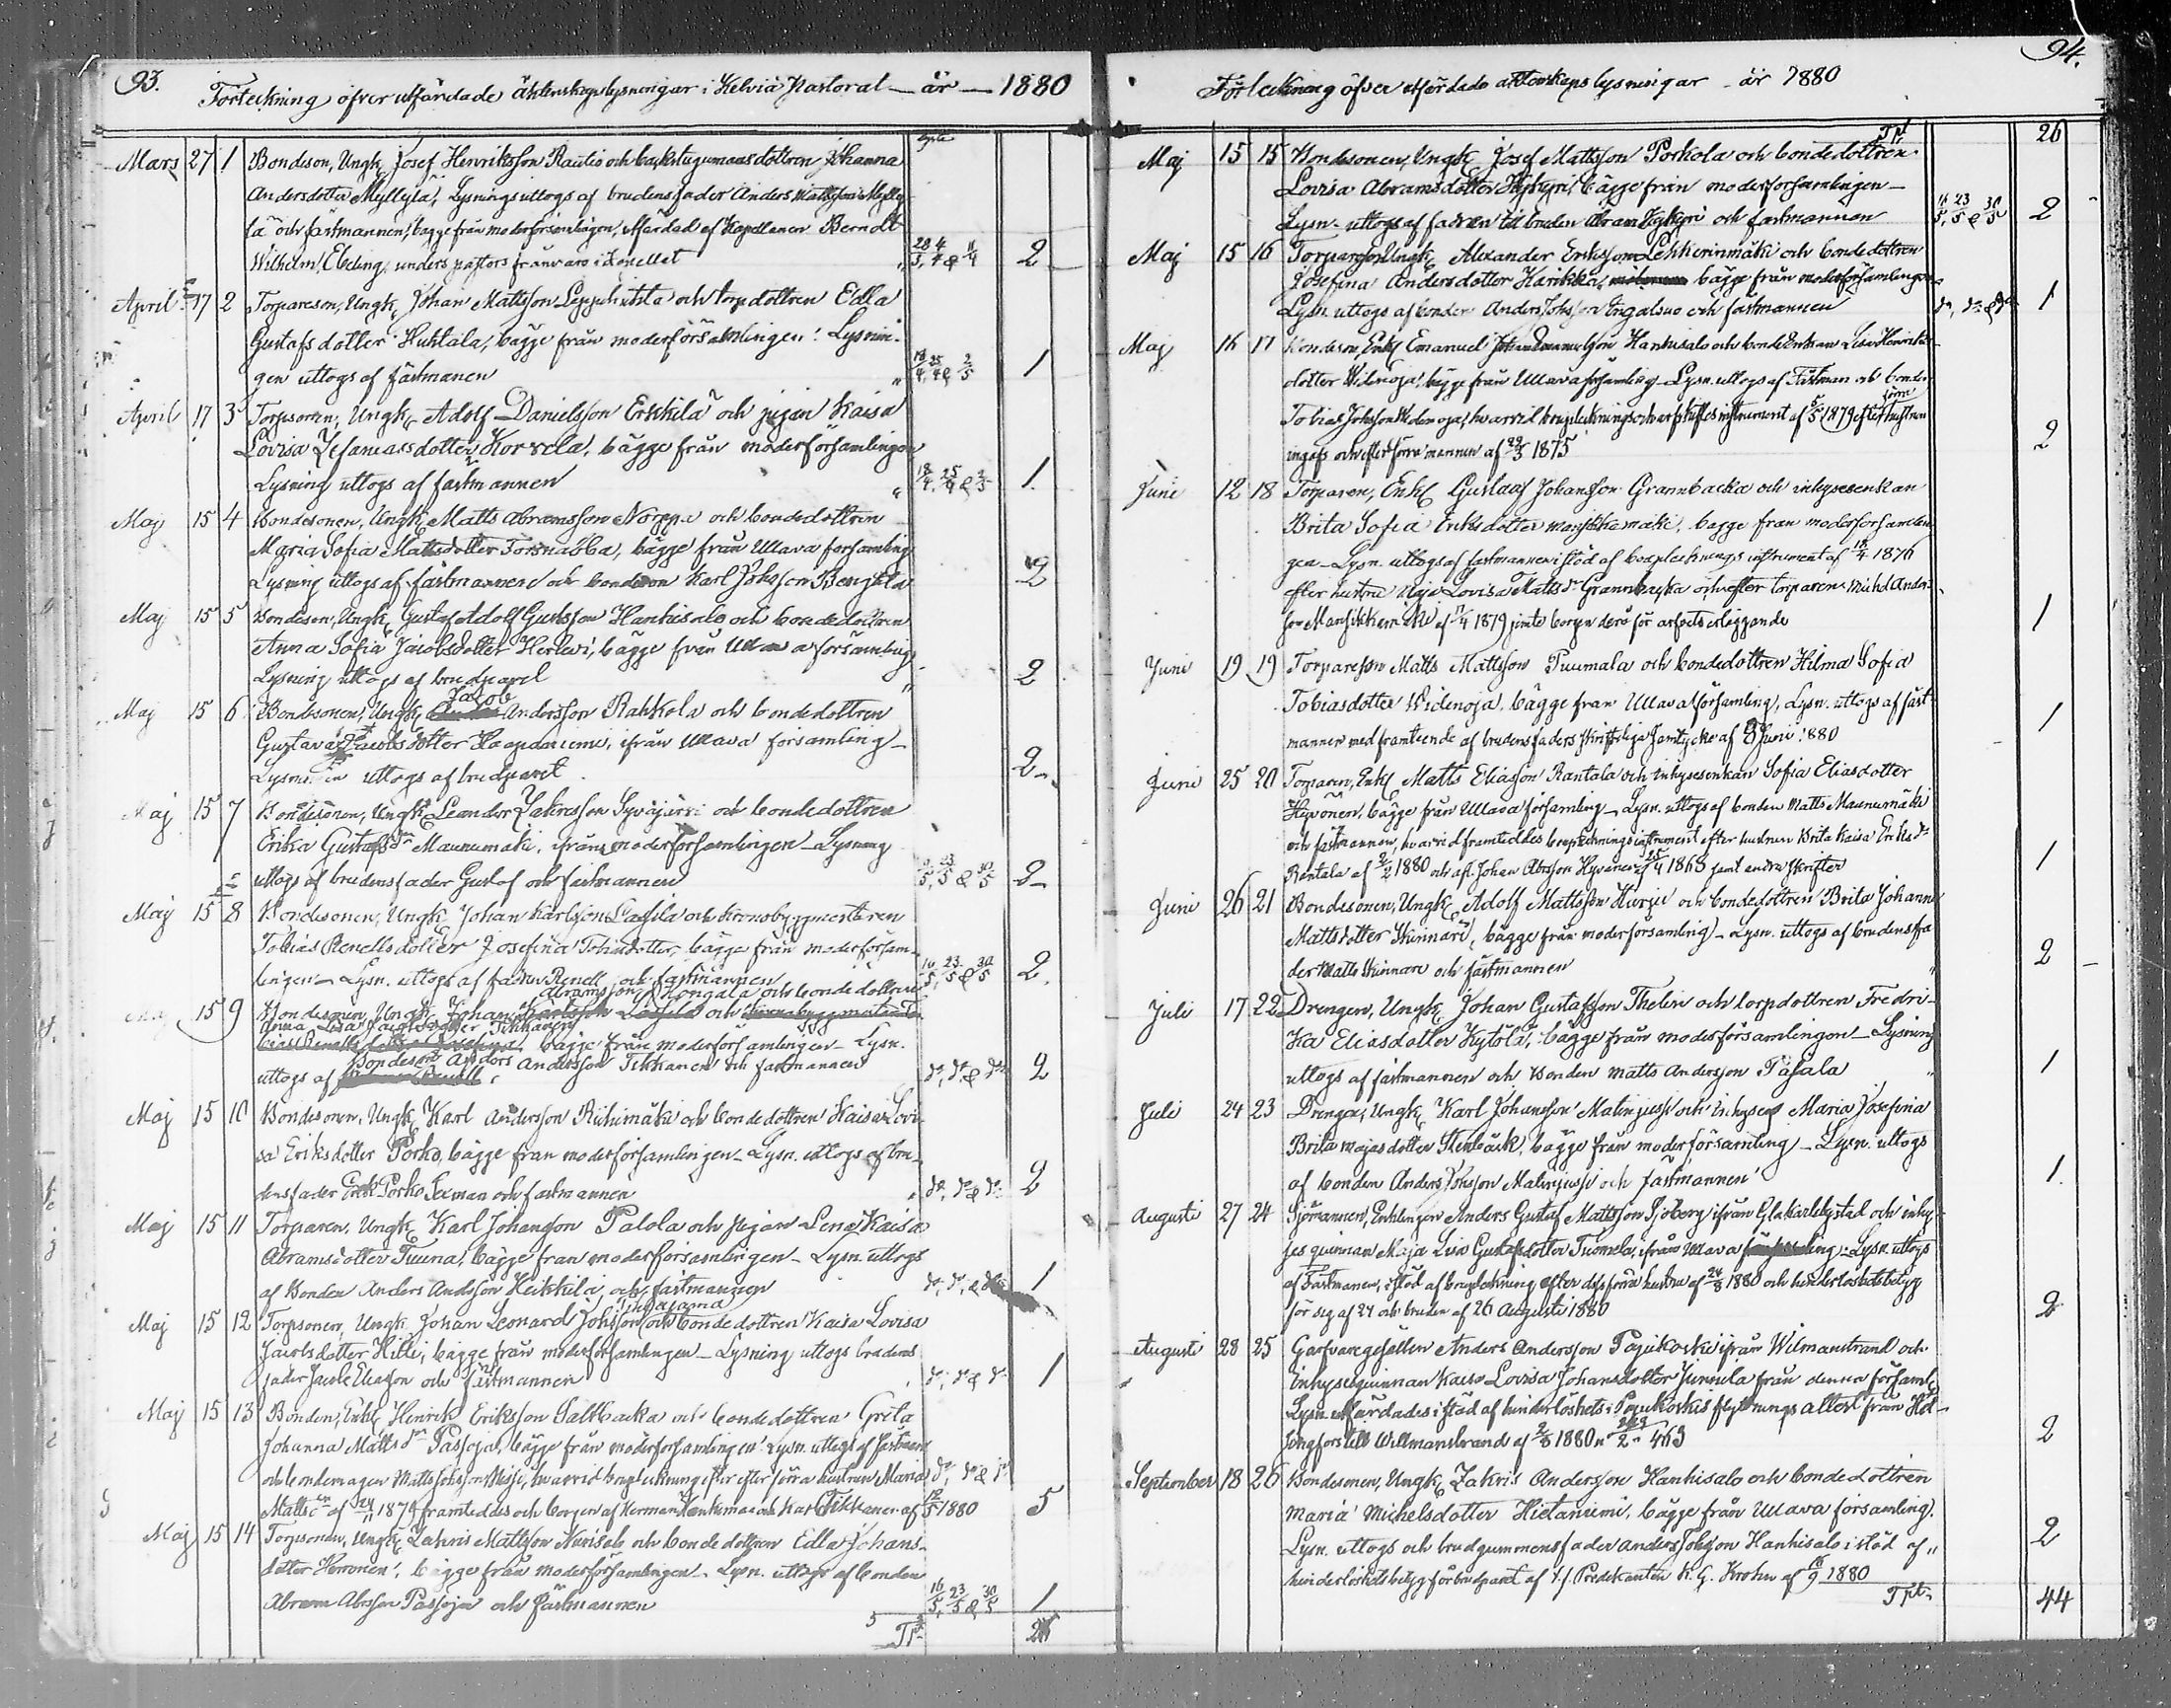 93.
Förteckning öfver utfärdade äktenskapslysningar i Kelviå Pastorat — år — 1880
Mars 27 1 Bondeson, Ungk. Josef Henriksson Rautio och backstugumansdottren Johanna
Andersdotter Myllylä, Lysnings uttogs af brudens fader Anders Mattsson Mylly-
lä och fästmannen, bägge från moderförsamlingen, utfärdad af Kapellanen Berndt
Wilhelm Ebeling, under pastors frånvaro i Kapellet 28/3, 4/4 & 11/4 2
April 17 2 Torpareson, Ungk. Johan Mattsson Leppihuhta och torpdottren Edla
Gustafsdotter Huhtala, bägge från moderförsamlingen: Lysnin-
gen uttogs af fästmanen 18/4, 25/4 & 2/5 1
April 17 3 Torpsonen, Ungk. Adolf Danielsson Erkkilä och pigan Kaisa
Lovisa Zefaniasdotter Korvela, bägge från moderförsamlingen
Lysning uttogs af fästmannen 18/4, 25/4 & 2/5 1.
Maj 15 4 Bondesonen, Ungk. Matts Abramsson Norppa och bondedottren
Maria Sofia Mattsdotter Torsnabba, bägge från Ullava församling
Lysning uttogs af fästmannen och bonden Karl Johsson Bengtila 2
Maj 15 5 Bondeson, Ungk. Gustaf Adolf Gustsson Hanhisalo och bondedottren
Anna Sofia Jacobsdotter Herlevi, bägge från Ullava församling
Lysning uttogs af brudparet 2
Jacob
Maj 15 6 Bondesonen, Ungk. Andersson Rahkola och bondedottren
Gustava Jacobsdotter Haapaniemi, ifrån Ullava församling
Lysnin en uttogs af brudparet 2
Maj 15 7 Bondesonen, Ungk. Leander Zakrisson Syväjärvi och bondedottren
Erika Gustafsdr Maunumäki, ifrån moderförsamlingen — Lysning
uttogs af brudens fader Gustaf och fästmannen 16/5, 23/5 & 30/5 2
Maj 15 8 Bondesonen, Ungk. Johan Karlsson Lassila och Kronobyggmästaren
Tobias Renells dotter Josefina Tobiasdotter, bägge från moderförsam-
lingen — Lysn. uttogs af fadren Renell och fästmannen 16/5, 23/5 & 30/5 2.
Abramsson Hongala och bondedottren
Maj 15 9 Bondesonen, Ungk. Johan Karlsson Lassila och Kronobyggmästaren
Anna Lisa Jacobsdotter Tikkanen
bägge från moderförsamlingen — Lysn.
Bondeson Anders
uttogs af Andersson Tikkanen och fästmannen do, do & do 2
Maj 15 10 Bondesonen, Ungk. Karl Andersson Riihimäki och bondedottren Kaisa Lovi-
sa Eriksdotter Porko, bägge från moderförsamlingen — Lysn. uttogs af bru-
dens fader Erik Porko Sexman och fästmannen do, do & do 2
Maj 15 11 Torparen, Ungk. Karl Johansson Palola och pigan Lena Kaisa
Abramsdotter Tuuna, bägge från moderförsamlingen — Lysn. uttogs
af Bonden Anders Andsson Heikkilä och fästmannen do, do, & do 1
Maj 15 12 Torpsonen, Ungk. Johan Leonard Johsson och bondedottren Kaisa Lovisa
Jacobsdotter Hilli, bägge från moderförsamlingen — Lysning uttogs brudens
fader Jacob Eliasson och fästmannen do, do & do 1
Maj 15 13 Bonden, Enkl. Henrik Eriksson Sallbacka och bondedottren Greta
Johanna Matts dr Passoja, bägge från moderförsamlingen. Lysn. uttogs af fästmannen
och bondemagen Matts Johsson Missi, hvarvid bouppteckning efter förra hustrun Maria do, do & do
Matts dr af 24/11 1874 framteddes och borgen af Herman och Karl Tikkanen af 12/5 1880 5
Maj 15 14 Torpsonen, Ungk. Zakris Mattsson Nurisalo och bondedottren Edla Johans-
dotter Herronen, bägge från moderförsamlingen — Lysn. uttogs af bonden
Abram Absson Passoja och fästmannen 16/5, 23/5 & 30/5 1
Tpt 26
94.
Förteckning öfver utfärdade äktenskaps lysningar — år 1880
Tpt 26
Maj 15 15 Bondesonen, Ungk. Josef Mattsson Porkola och bondedottren
Lovisa Abramsdotter Kykyri, bägge från moderförsamlingen —
Lysn. uttogs af fadren till bruden Abram Kykyri och fästmannen 16/5, 23/5 & 30/5 2
Maj 15 16 Torpareson Ungk. Alexander Eriksson Lehkerinmäki och bondedottren
Josefina Andersdotter Harikka, bägge från moderförsamlingen
Lysn. uttogs af bonden Anders Johsson Engalsuo och fästmannen do, do & do 1
Maj 16 17 Bondeson, Enkl. Emanuel Hanhisalo och bonde Enkan Lisa Henriks-
dotter Widenoja, bägge från Ullava församling — Lysn. uttogs af Fästman och bonden
förra
Tobias Johsson Widenoja, hvarvid bouppteckning och arfskiftes instrument af 5/5 1879 efter hustrun
ingafs och efter förra mannen af 29/3 1875 2
Juni 12 18 Torparen, Enkl. Gustaf Johansson Grannbacka och inhysesenkan
Brita Sofia Eriksdotter Mansikkamäki, bägge från moderförsamlin-
gen — Lysn. uttogs af fästmannen i stöd af bouptecknings instrument af 18/4 1876
efter hustru Maja Lovisa Matts dr Grannbacka och efter torparen Mich. Anders-
son Mansikkamäki af 17/4 1879 jemte borgen derå för arfvets erläggande 1
Juni 19 19 Torpareson Matts Mattsson Puumala och bondedottren Hilma Sofia
Tobiasdotter Widenoja, bägge från Ullava församling, Lysn. uttogs af fäst-
mannen med framteende af brudens faders skriftliga samtycke af 8 Juni 1880 1
Juni 25 20 Torparen, Enkl. Matts Eliasson Rantala och inhysesenkan Sofia Eliasdotter
Hyvönen, bägge från Ullava församling — Lysn. uttogs af bonden Matts Maunumäki
och fästmannen, hvarvid framteddes bouptecknings instrument efter hustrun Brita Kaisa Eriks dr
Rantala af 2/2 1880 och afl. Johan Absson Hyvönen af 25/4 1868 samt andra skrifter 1
Juni 26 21 Bondesonen, Ungk. Adolf Mattsson Hurju och bondedottren Brita Johanna
Mattsdotter Skinnari, bägge från moderförsamling) — Lysn. uttogs af brudens fa-
der Matts Skinnare och fästmannen 2
Juli 17 22 Drengen, Ungk. Johan Gustafsson Thelin och torpdottren Fredri-
ka Eliasdotter Kytölä, bägge från moderförsamlingen — Lysning
uttogs af fästmannen och Bonden Matts Andersson Päsala 1
Juli 24 23 Drengen, Ungk. Karl Johansson Matinjussi och Inhyses Maria Josefina
Brita Majasdotter Stenbäck, bägge från moderförsamling — Lysn. uttogs
af bonden Anders Johsson Matinjussi och fästmannen 1.
Augusti 27 24 Sjömannen, Enklingen Anders Gustaf Mattsson Sjöberg ifrån Glakarleby stad och inhy-
ses quinnan Maja Lisa Gustafsdotter Tuomela, ifrån Ullava församling — Lysn. uttogs
af Fästmanen, i stöd af bouppteckning efter dess förra hustru af 24/8 1880 och hinderlöshetsbetyg
för sig af 24 och bruden af 26 Augusti 1880 2
Augusti 28 25 Garfvaregesällen Anders Andersson Pajukoski ifrån Wilmanstrand och
Inhysesquinnan Kaisa Lovisa Johansdotter Junnila från denna församl.
Lysn. utfärdades i stöd af hinderlöshets i Pajukoskis flyttnings attest från Hel-
singfors till Willmanstrand af 2/8 1880 n 463 2
September 18 26 Bondesonen, Ungk. Zakris Andersson Hanhisalo och bondedottren
Maria Michelsdotter Hietaniemi, bägge från Ullava församling.
Lysn. uttogs och brudgummens fader Anders Johsson Hanhisalo i stöd af 2
hinderlöshetsbetyg för brudparet af V.f. Predikanten K. G. Krohn af 18/9 1880
Tpt 44